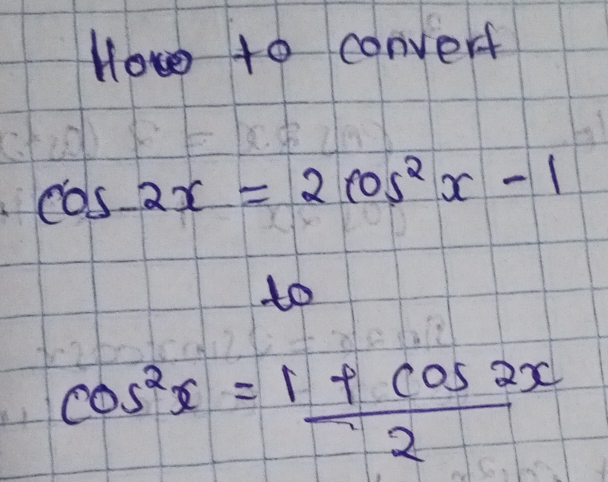 How to convert
cos 2x = 2 cos² x - 1
to
cos² x = 1 + cos 2x
2